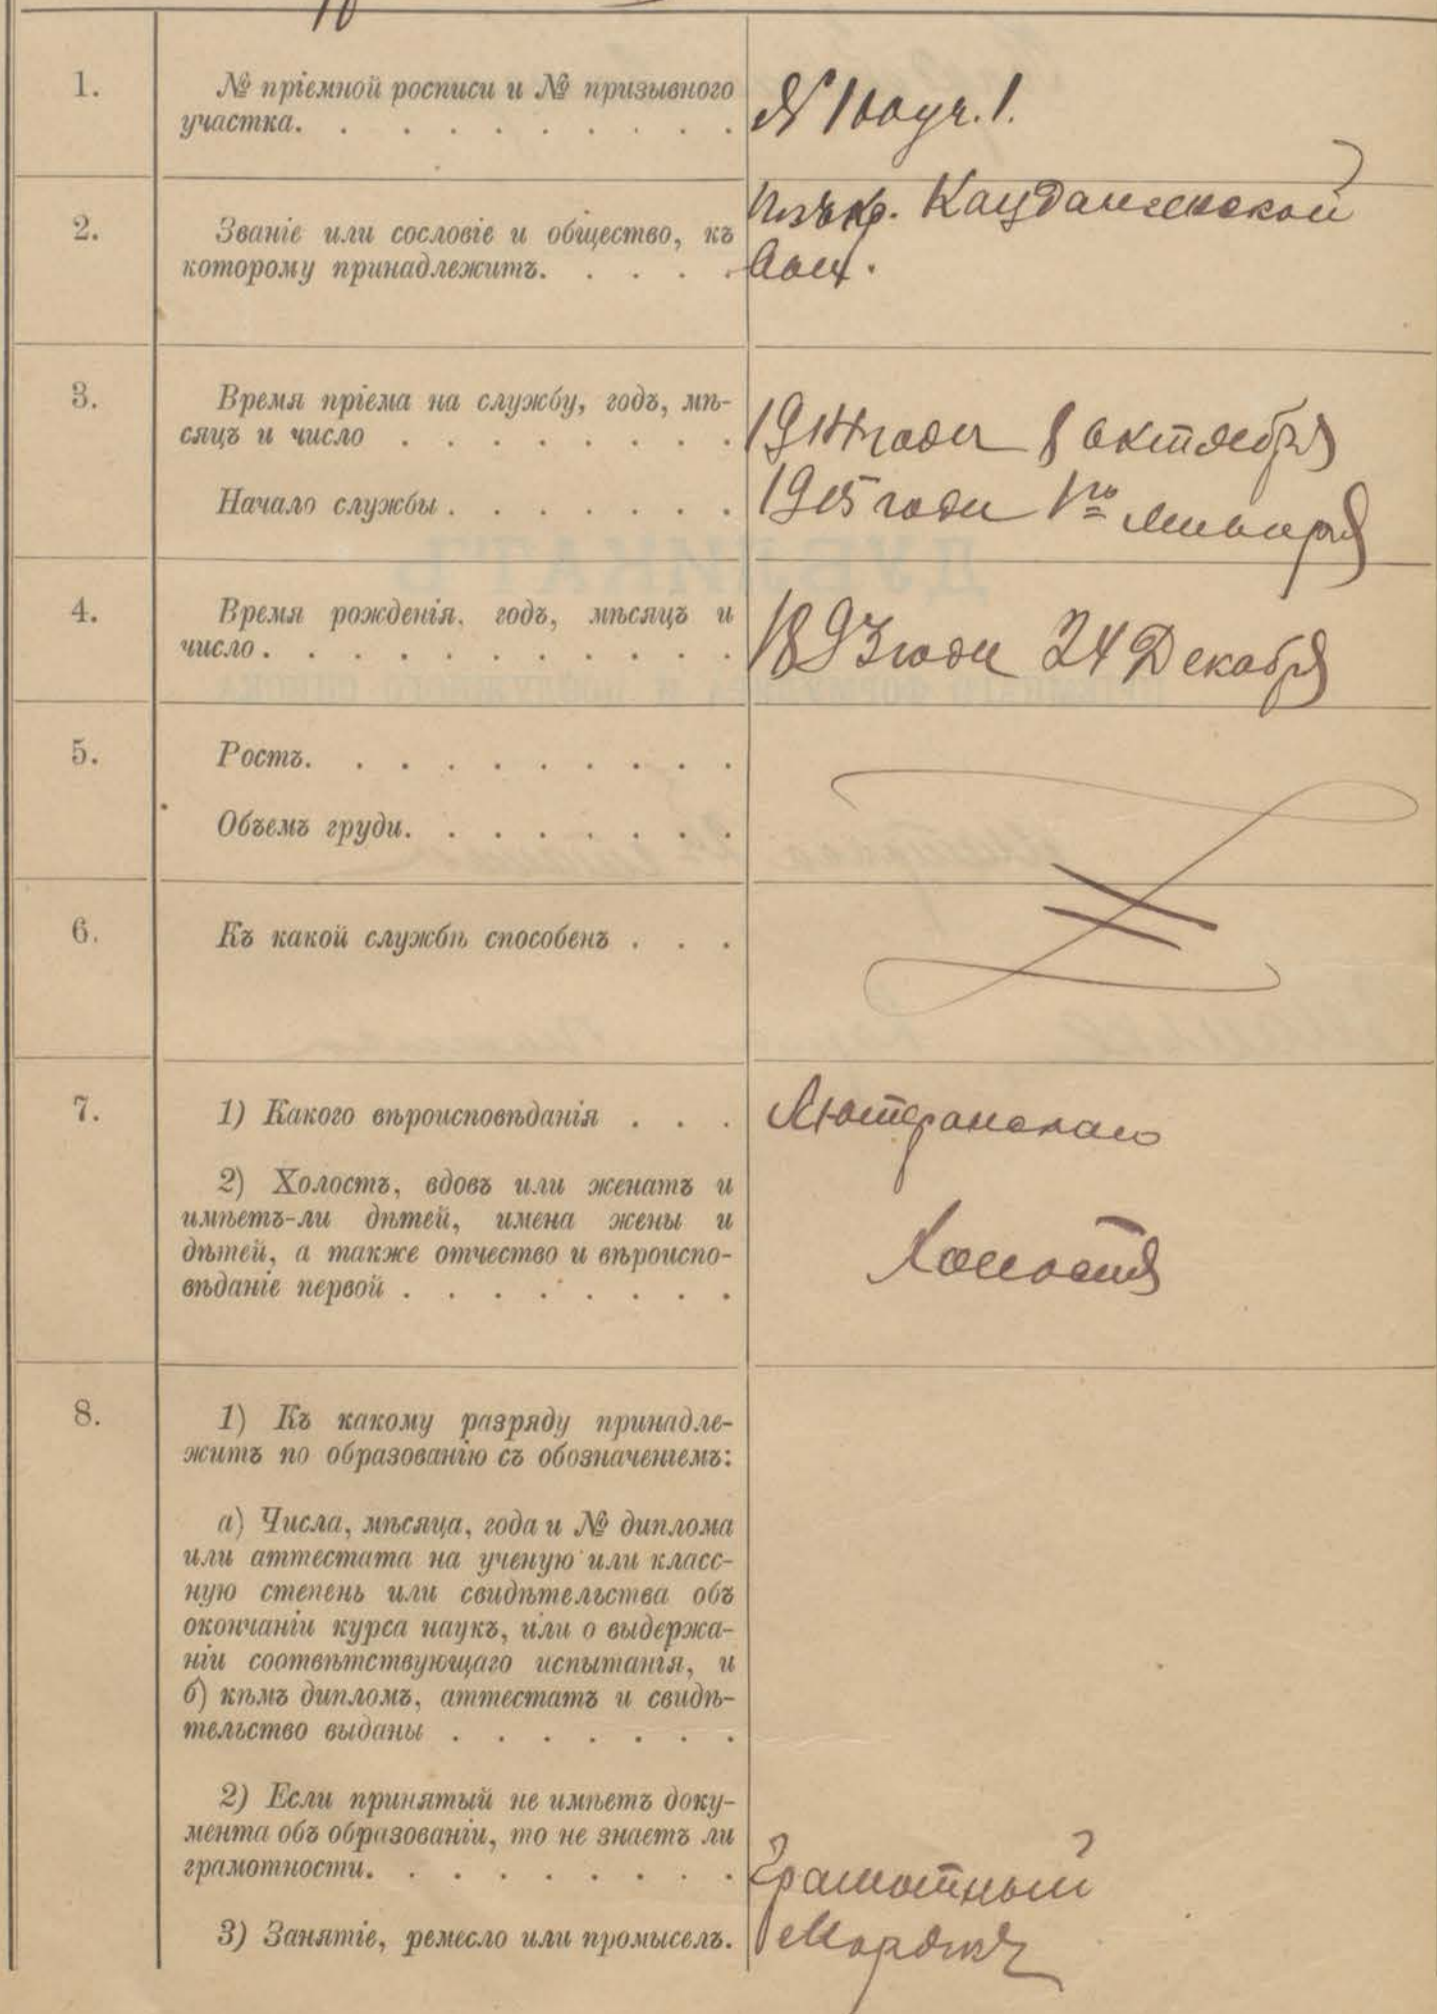 1.
№ пріемной росписи и № призывного
участка.
№ 100 уч. 1.
2.
Званіе или сословіе и общество, къ
которому принадлежитъ.
Изъ кр.
3.
Время пріема на службу, годъ, мѣ-
сяцъ и число
1914 года 8 октября
Начало службы
1915 года 1го января
ДУБЛИКАТЪ
4.
Время рожденія. годъ, мѣсяцъ и
число.
1893 года 24 Декабря
5.
Ростъ.
Объемъ груди.
6.
Къ какой службѣ способенъ
7.
1) Какого вѣроисповѣданія
Лютеранскаго
2) Холостъ, вдовъ или женатъ и
имѣетъ-ли дѣтей, имена жены и
дѣтей, а также отчество и вѣроиспо-
вѣданіе первой
Холостъ
8.
1) Къ какому разряду принадле-
житъ по образованію съ обозначеніемъ:
а) Числа, мѣсяца, года и № диплома
или аттестата на ученую или класс-
ную степень или свидѣтельства объ
окончаніи курса наукъ, или о выдержа-
ніи соотвѣтствующаго испытанія, и
б) кѣмъ дипломъ, аттестатъ и свидѣ-
тельство выданы
2) Если принятый не имѣетъ доку-
мента объ образованіи, то не знаетъ ли
грамотности.
Грамотный
3) Занятіе, ремесло или промыселъ.